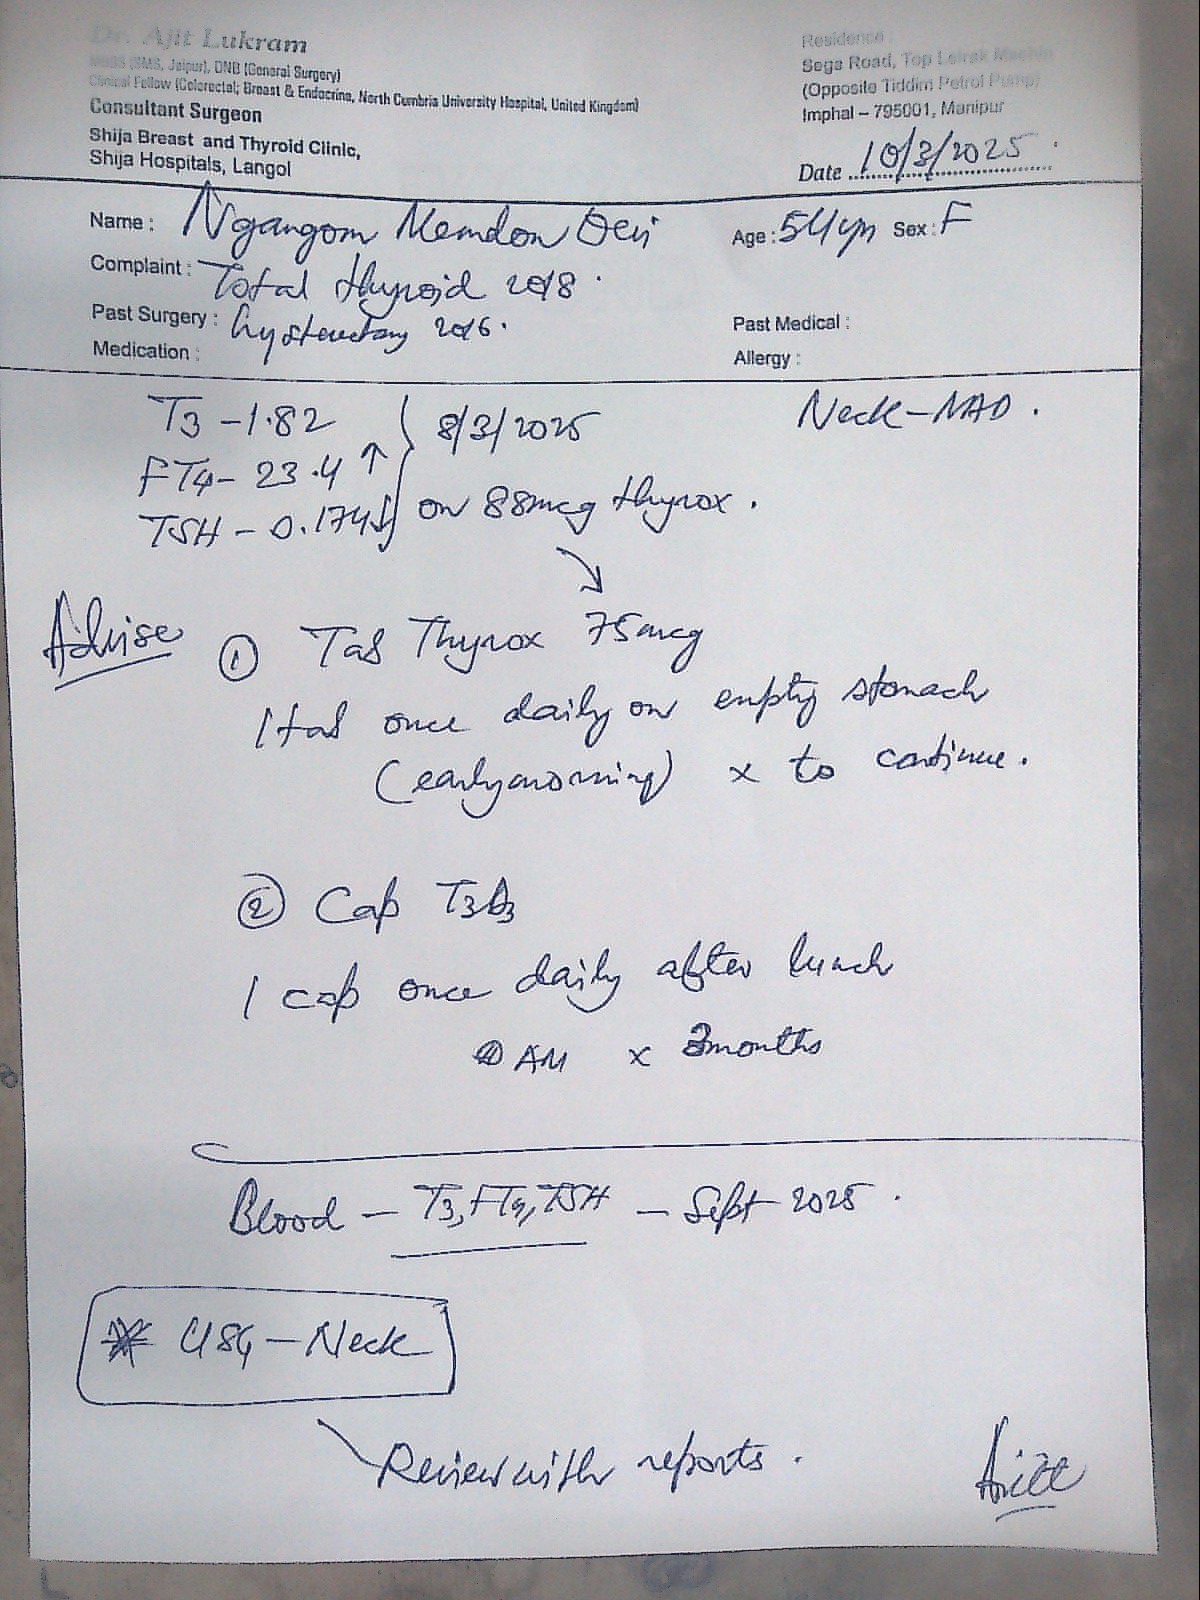 Dr. Ajit Lukram
MBBS (SMS, Jaipur), DNB (General Surgery)
Clinical Fellow (Colorectal; Breast & Endocrine, North Cumbria University Hospital, United Kingdom)
Consultant Surgeon
Shija Breast and Thyroid Clinic,
Shija Hospitals, Langol
Residence :
Sega Road, Top Leirak Machin
(Opposite Tiddim Petrol Pump)
Imphal – 795001, Manipur
Date 10/3/2025
Name : Ngangom Memdon Devi Age : 54yrs Sex : F
Complaint : Total thyroid 2018.
Past Surgery : hysterectomy 2016. Past Medical :
Medication : Allergy :
T3 – 1.82 8/3/2025 Neck – NAD.
FT4 – 23.4 ↑
TSH – 0.174 ↓ on 88mcg thyrox.
Advise ① Tab Thyrox 75mcg
1 tab once daily on empty stomach
(early morning) x to continue.
② Cap T3D3
1 cap once daily after lunch
AM x 3months
Blood – T3, FT4, TSH – Sept 2025.
* USG – Neck
Review with reports.